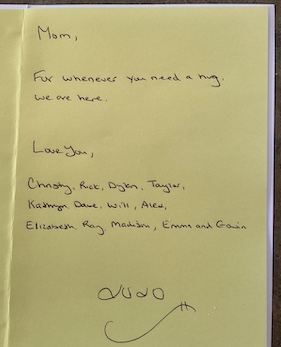 Mom,
For whenever you need a hug.
we are here.
Love You,
Christy, Rick, Dylan, Taylor,
Kathryn Dave, Will, Alex,
Elizabeth Ray, Madison, Emma and Gavin